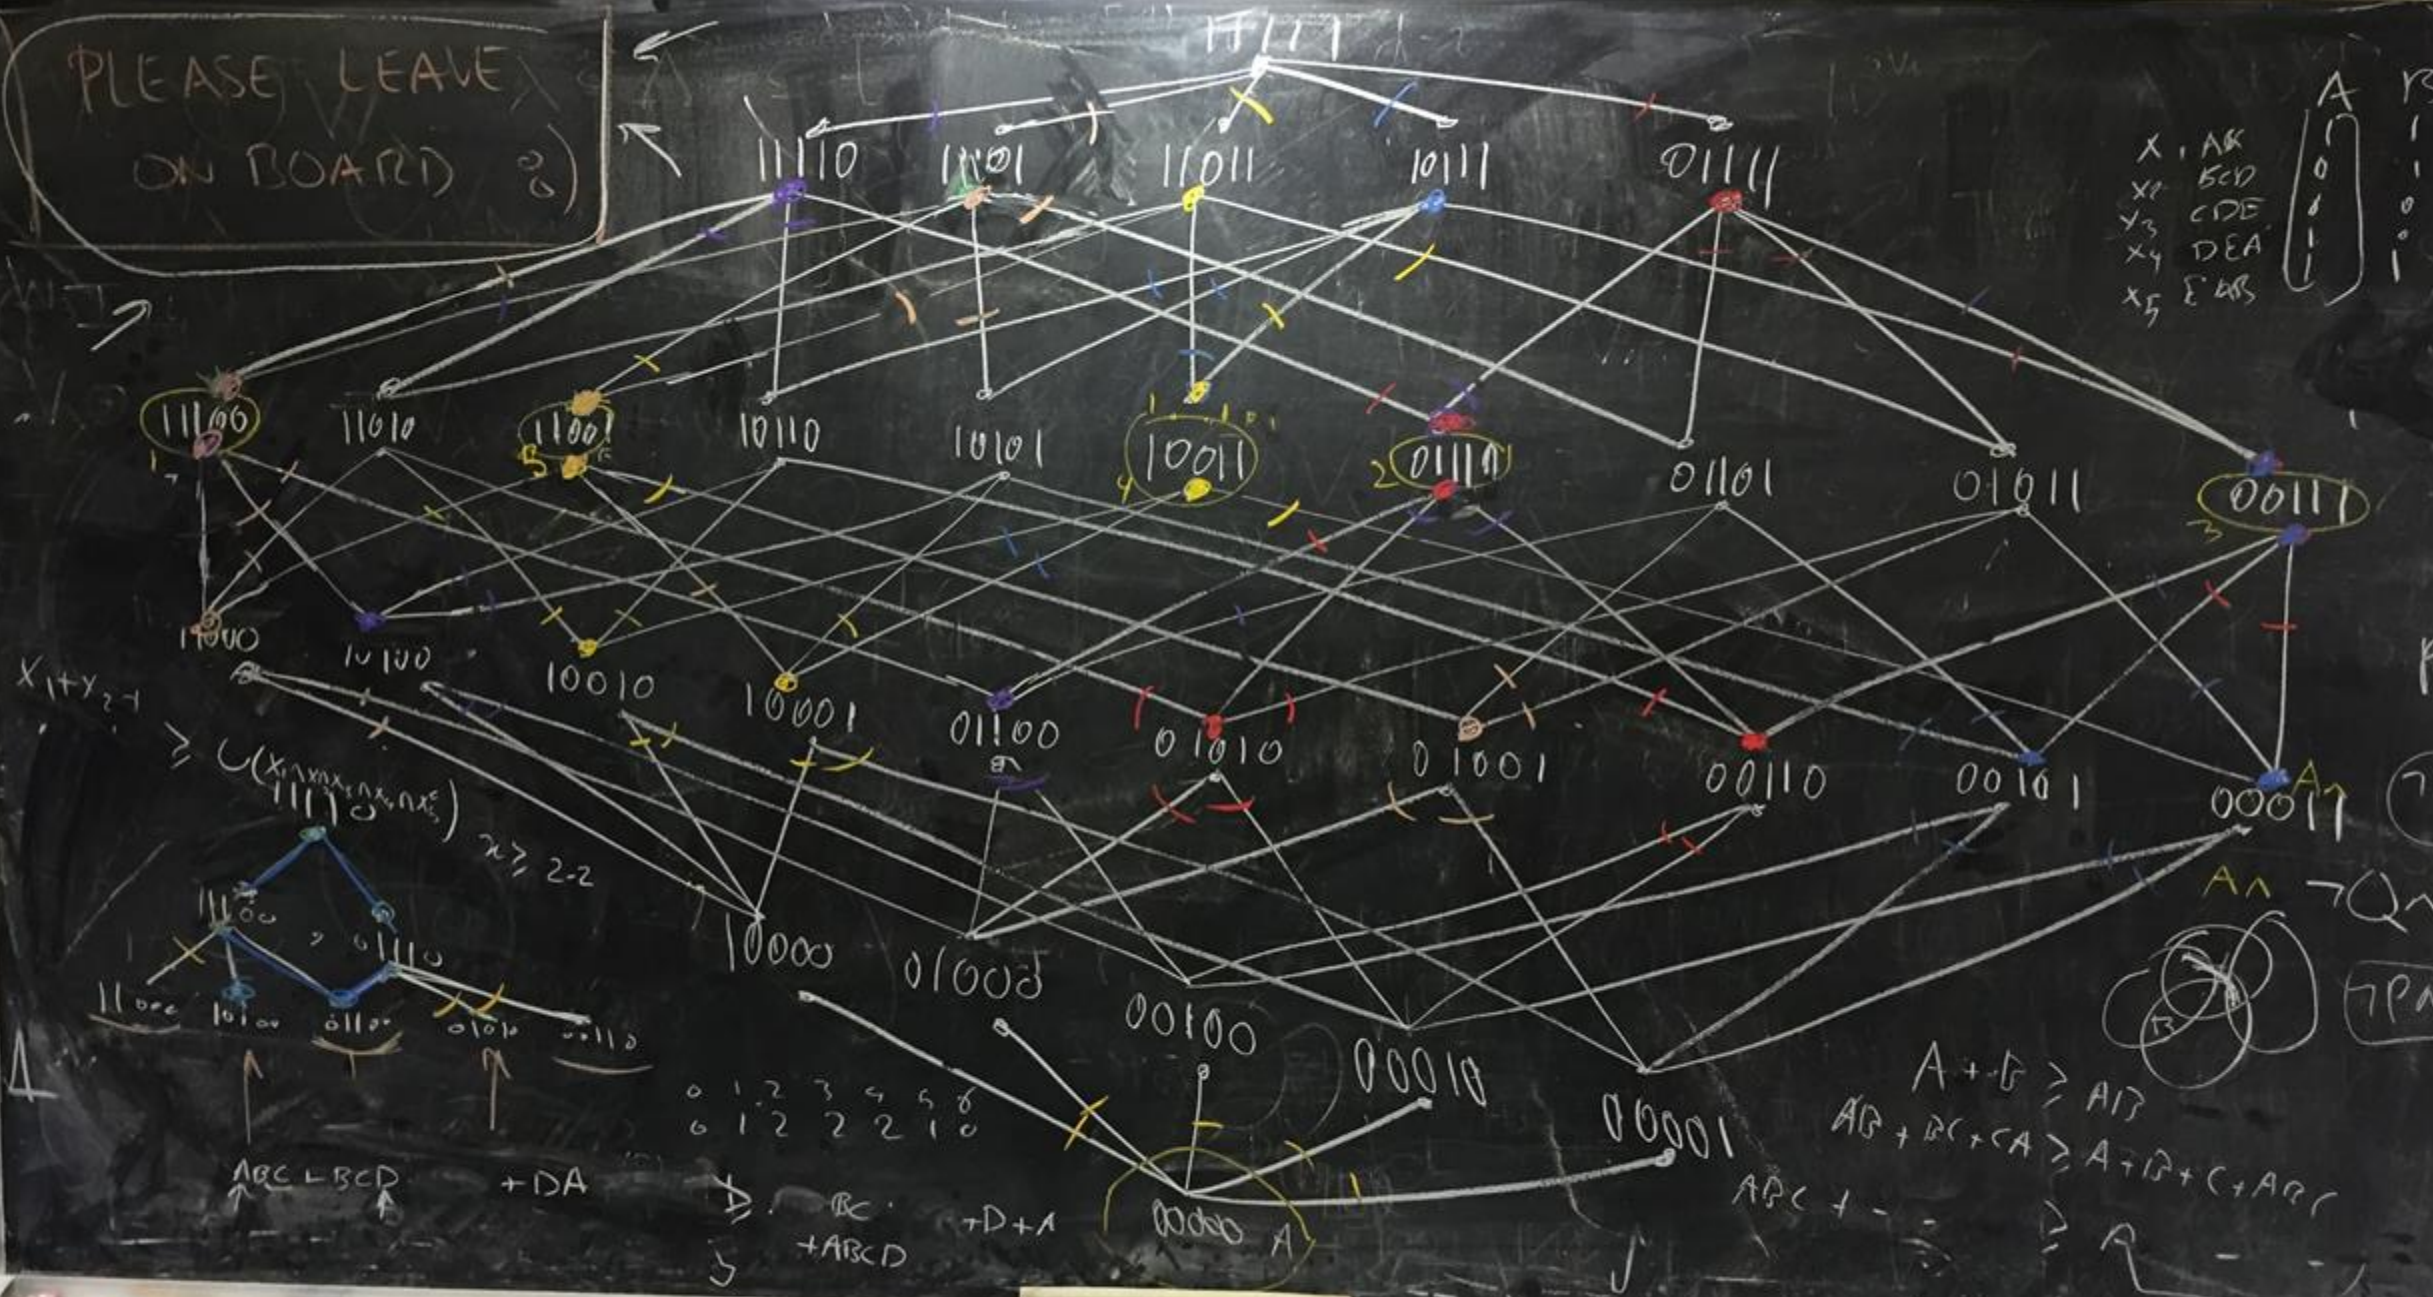 PLEASE LEAVE
ON BOARD :)
11111
11110 11101 11011 10111 01111
A
X1 AB
X2 BCD
X3 CDE
X4 DEA
X5 EAB
1
0
0
1
1
11100 11010 11001 10110 10101 10011 01110 01101 01011 00111
1 5 4 2 3
11000 10100 10010 10001 01100 01010 01001 00110 00101 00011
X1+X2-1
≥ ∪(X1∩X2∩X3∩X4∩X5ᶜ)
n ≥ 2.2
11110
11100 01110
11000 10100 01100 01010 00110
10000 01000 00100 00010 00001
00000 A
A∧ ¬Q∧
B
ABC + BCD +DA
0 1 2 3 4 5 6
0 1 2 2 2 1 0
≥ BC +D+A
+ABCD
A+B ≥ AB
AB + BC + CA ≥ A+B+C+ABC
ABC + - - ≥ A - -